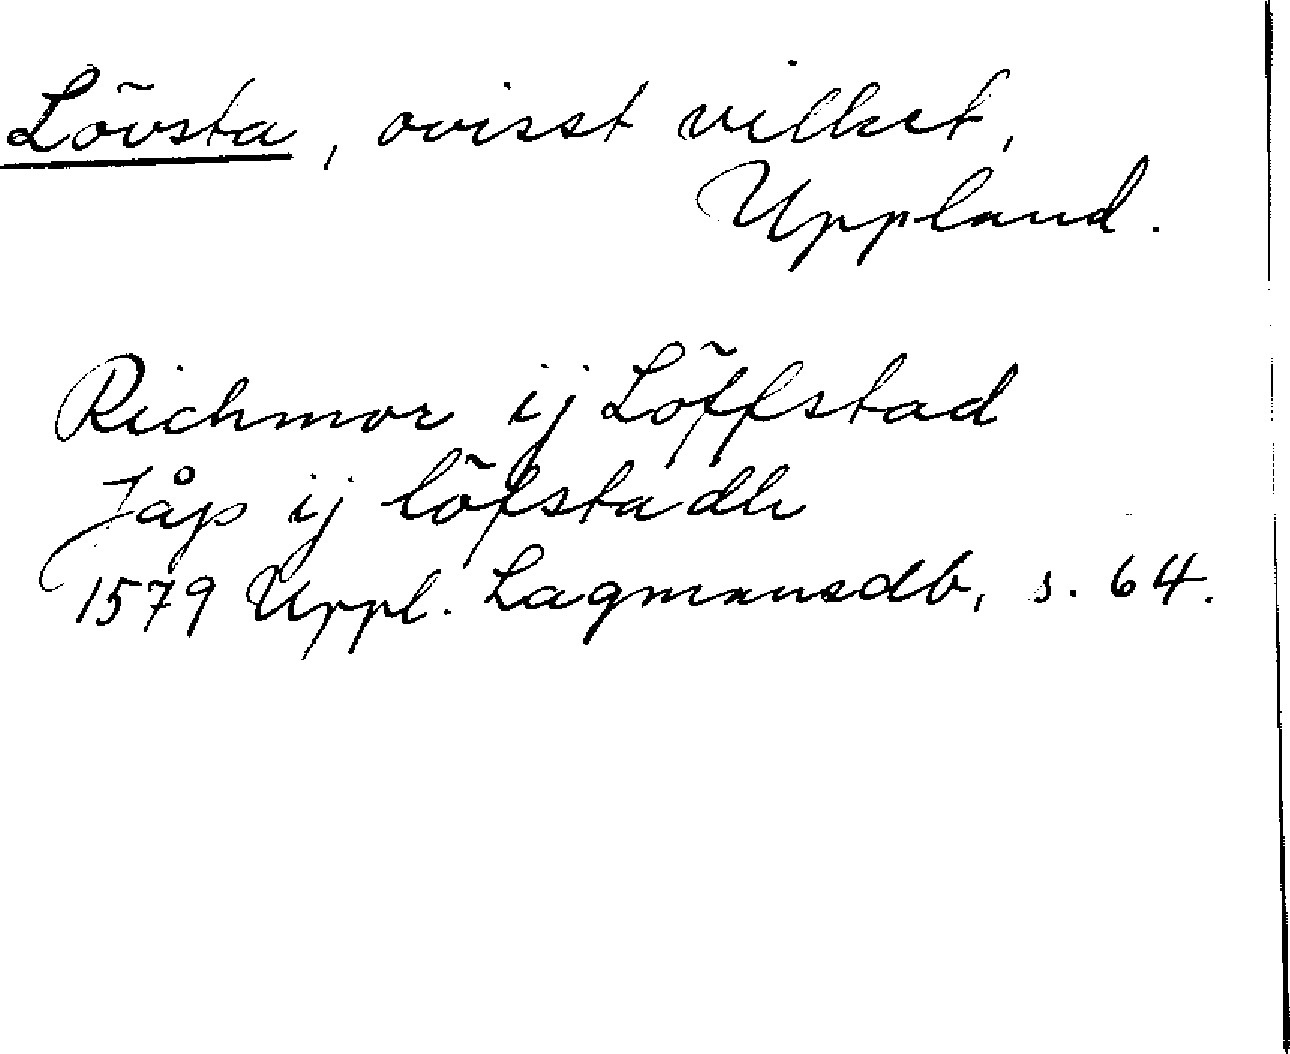 Lövsta, ovisst vilket,
Uppland.
Richmor ij Löffstad
Jåp ij löfstadh
1579 Uppl. Lagmansdb, s. 64.